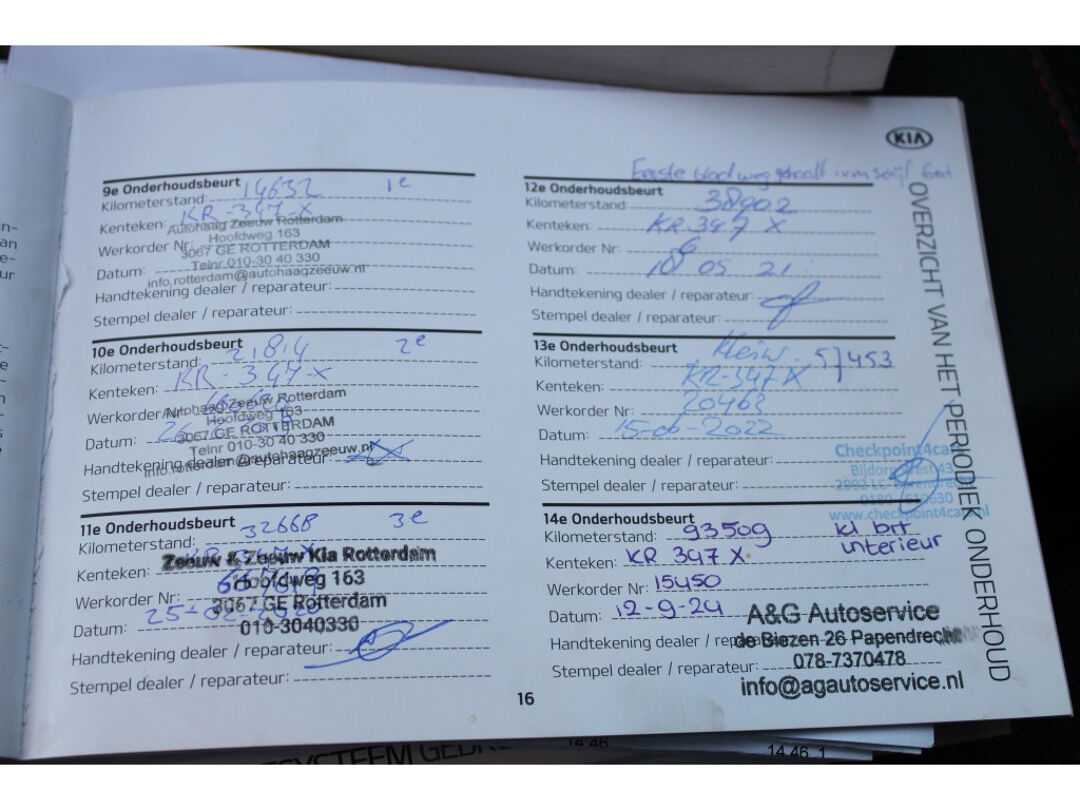 KIA
OVERZICHT VAN HET PERIODIEK ONDERHOUD
9e Onderhoudsbeurt
1e
Kilometerstand: 14632
Kenteken: KR-347-X
Autohaag Zeeuw Rotterdam
Hoofdweg 163
Werkorder Nr:
3067 GE ROTTERDAM
Telnr 010-30 40 330
Datum:
info.rotterdam@autohaagzeeuw.nl
Handtekening dealer / reparateur:
Stempel dealer / reparateur:
10e Onderhoudsbeurt
2e
Kilometerstand: 21814
Kenteken: KR-347-X
Autohaag Zeeuw Rotterdam
Werkorder Nr:
Hoofdweg 163
3067 GE ROTTERDAM
Datum:
Telnr 010-30 40 330
info.rotterdam@autohaagzeeuw.nl
Handtekening dealer / reparateur:
Stempel dealer / reparateur:
11e Onderhoudsbeurt
3e
Kilometerstand: 32668
Kenteken: KR-347-X
Zeeuw & Zeeuw Kia Rotterdam
Hoofdweg 163
Werkorder Nr:
3067 GE Rotterdam
Datum: 25-02-2020
010-3040330
Handtekening dealer / reparateur:
Stempel dealer / reparateur:
Eerste blad weg gehaald ivm
12e Onderhoudsbeurt
Kilometerstand: 38902
Kenteken: KR 347 X
Werkorder Nr:
Datum: 05 21
Handtekening dealer / reparateur:
Stempel dealer / reparateur:
13e Onderhoudsbeurt
Klein
Kilometerstand: 57453
Kenteken: KR-347 X
Werkorder Nr: 20463
Datum: 15-06-2022
Checkpoint4car
Handtekening dealer / reparateur:
Stempel dealer / reparateur:
www.checkpoint4car.nl
14e Onderhoudsbeurt
Kilometerstand: 93509
kl brt
interieur
Kenteken: KR 347 X
Werkorder Nr: 15450
Datum: 12-9-24
A&G Autoservice
Handtekening dealer / reparateur:
de Biezen 26 Papendrecht
078-7370478
Stempel dealer / reparateur:
info@agautoservice.nl
16
14.46
14.46 1